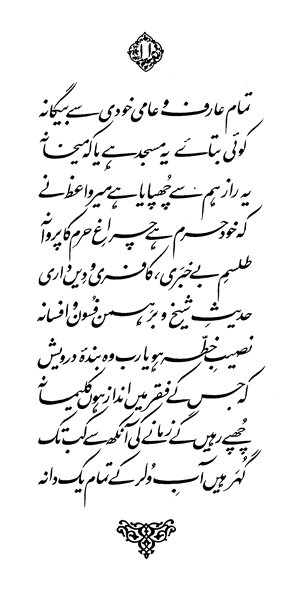 ۱۱
تمام عارف و عامی خودی سے بیگانہ
کوئی بتائے یہ مسجد ہے یا کہ میخانہ
یہ راز ہم سے چھپایا ہے میر واعظ نے
کہ خود حرم ہے چراغِ حرم کا پروانہ
طلسمِ بے خبری، کافری و دیں داری
حدیثِ شیخ و برہمن فسون و افسانہ
نصیبِ خطّہ ہو یا رب وہ بندۂ درویش
کہ جس کے فقر میں انداز ہوں کلیمانہ
چھپے رہیں گے زمانے کی آنکھ سے کب تک
گہر ہیں آبِ وُلر کے تمام یک دانہ